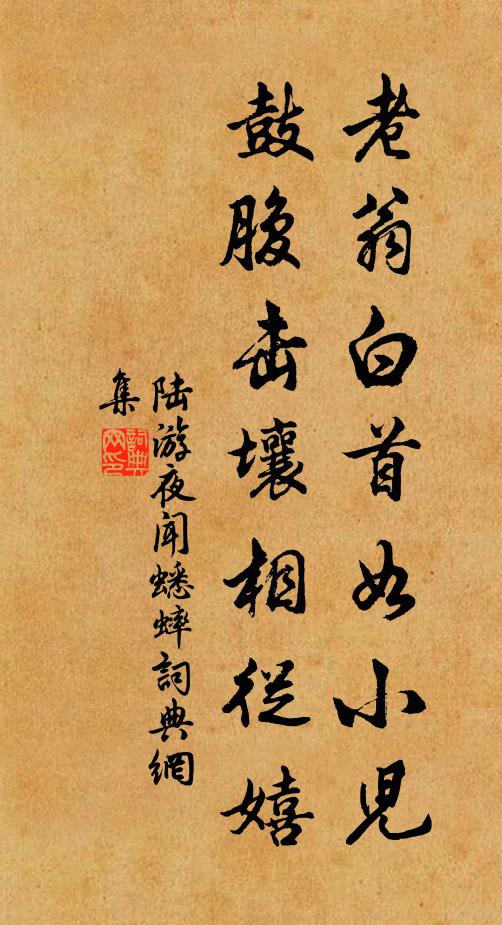 老翁白首如小児
鼓腹击壤相從嬉
陆游夜闻蟋蟀詞典網
集
詞典
网印